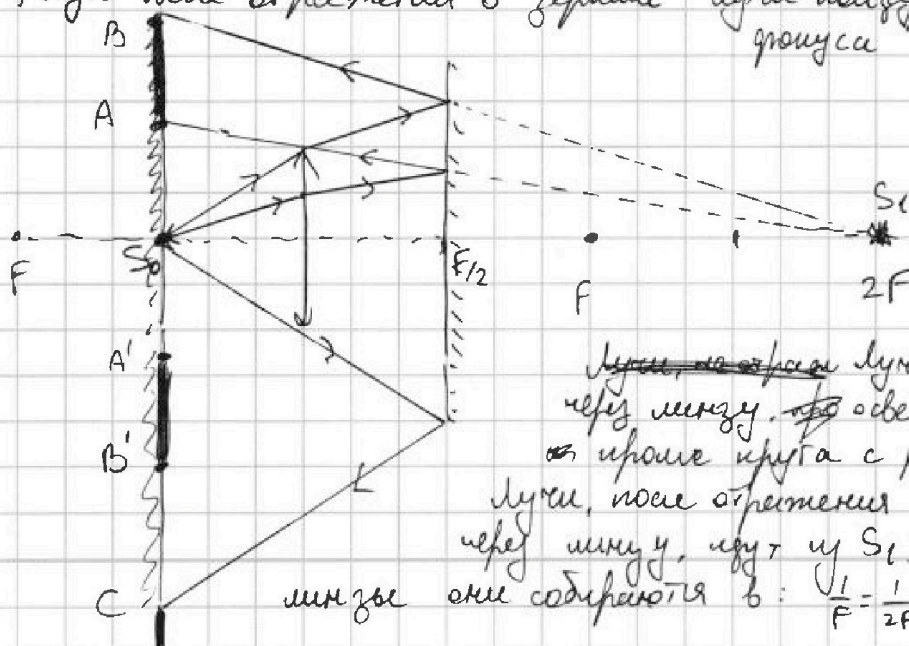 после отражения в зеркале лучи
фокуса
B
A
S₀
F
F/2
F
S₁
2F
A'
через линзу,
B'
кроме круга с
Лучи, после отражения
через линзу, идут из S₁,
C
линзы они собираются в: 1/F = 1/2F